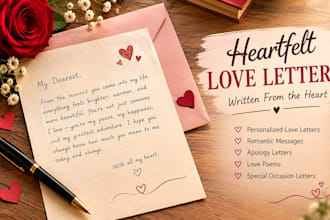 My Dearest,
From the moment you came into my life,
everything feels brighter, warmer, and
more beautiful. You're not just someone
I love—you're my peace, my happiness,
and my greatest adventure. I hope you
always know how much you mean to me,
today and always.
With all my heart,
Heartfelt
LOVE LETTER
Written From the Heart
Personalized Love Letters
Romantic Messages
Apology Letters
Love Poems
Special Occasion Letters